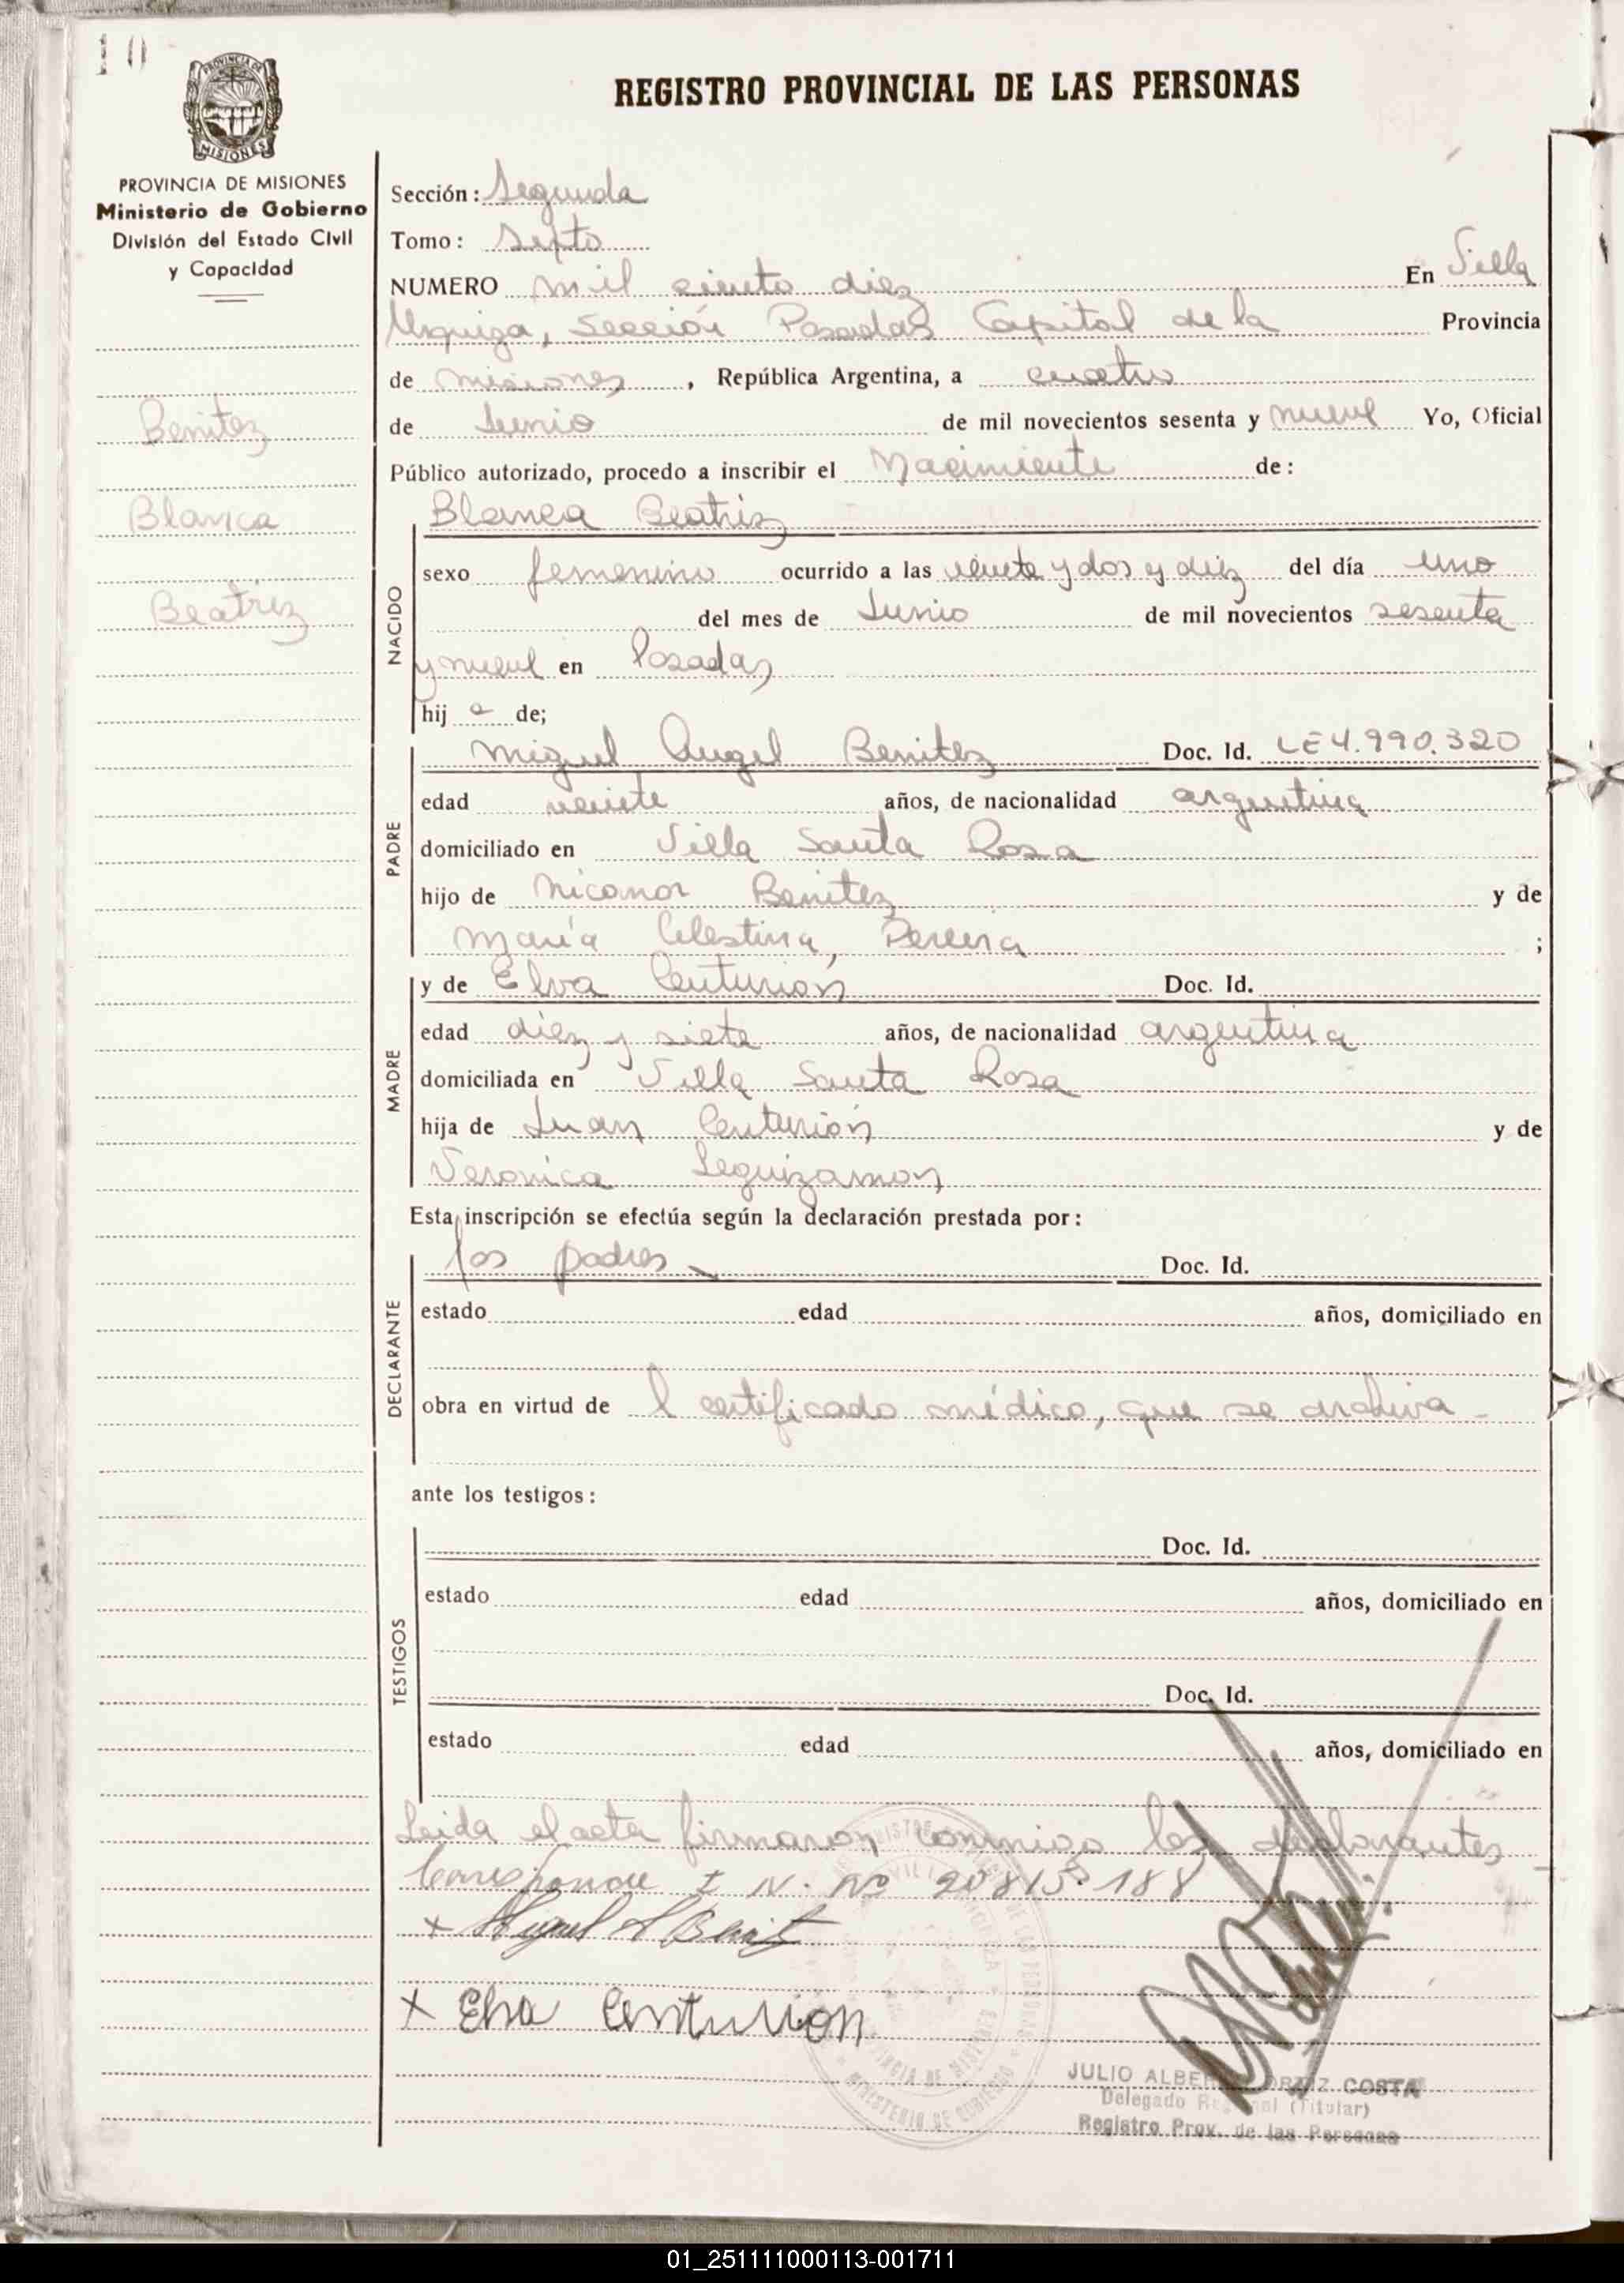 10
PROVINCIA DE MISIONES
REGISTRO PROVINCIAL DE LAS PERSONAS
PROVINCIA DE MISIONES
Ministerio de Gobierno
División del Estado Civil
y Capacidad
Benitez
Blanca
Beatriz
Sección: Segunda
Tomo: Sexto
NUMERO mil ciento diez En Villa
Urquiza, Sección Posadas Capital de la Provincia
de misiones, República Argentina, a cuatro
de Junio de mil novecientos sesenta y nueve Yo, Oficial
Público autorizado, procedo a inscribir el Nacimiento de:
Blanca Beatriz
NACIDO
sexo femenino ocurrido a las veinte y dos y diez del día uno
del mes de Junio de mil novecientos sesenta
y nueve en Posadas
hij a de;
PADRE
Miguel Angel Benitez Doc. Id. LE 4.990.320
edad veinte años, de nacionalidad argentina
domiciliado en Villa Santa Rosa
hijo de Nicanor Benitez y de
María Celestina Pereira ;
MADRE
y de Elva Centurión Doc. Id.
edad diez y siete años, de nacionalidad argentina
domiciliada en Villa Santa Rosa
hija de Juan Centurión y de
Veronica Leguizamon
Esta inscripción se efectúa según la declaración prestada por:
DECLARANTE
los padres Doc. Id.
estado edad años, domiciliado en
obra en virtud de l certificado médico, que se archiva -
ante los testigos:
TESTIGOS
Doc. Id.
estado edad años, domiciliado en
Doc. Id.
estado edad años, domiciliado en
Leida el acta firmaron conmigo los declarantes
Corresponde I N. No 20815188
x Miguel A Benitez
x Elva Centurion
JULIO ALBE ORTIZ COSTA
Delegado Regional (Titular)
Registro Prov. de las Personas
01_251111000113-001711